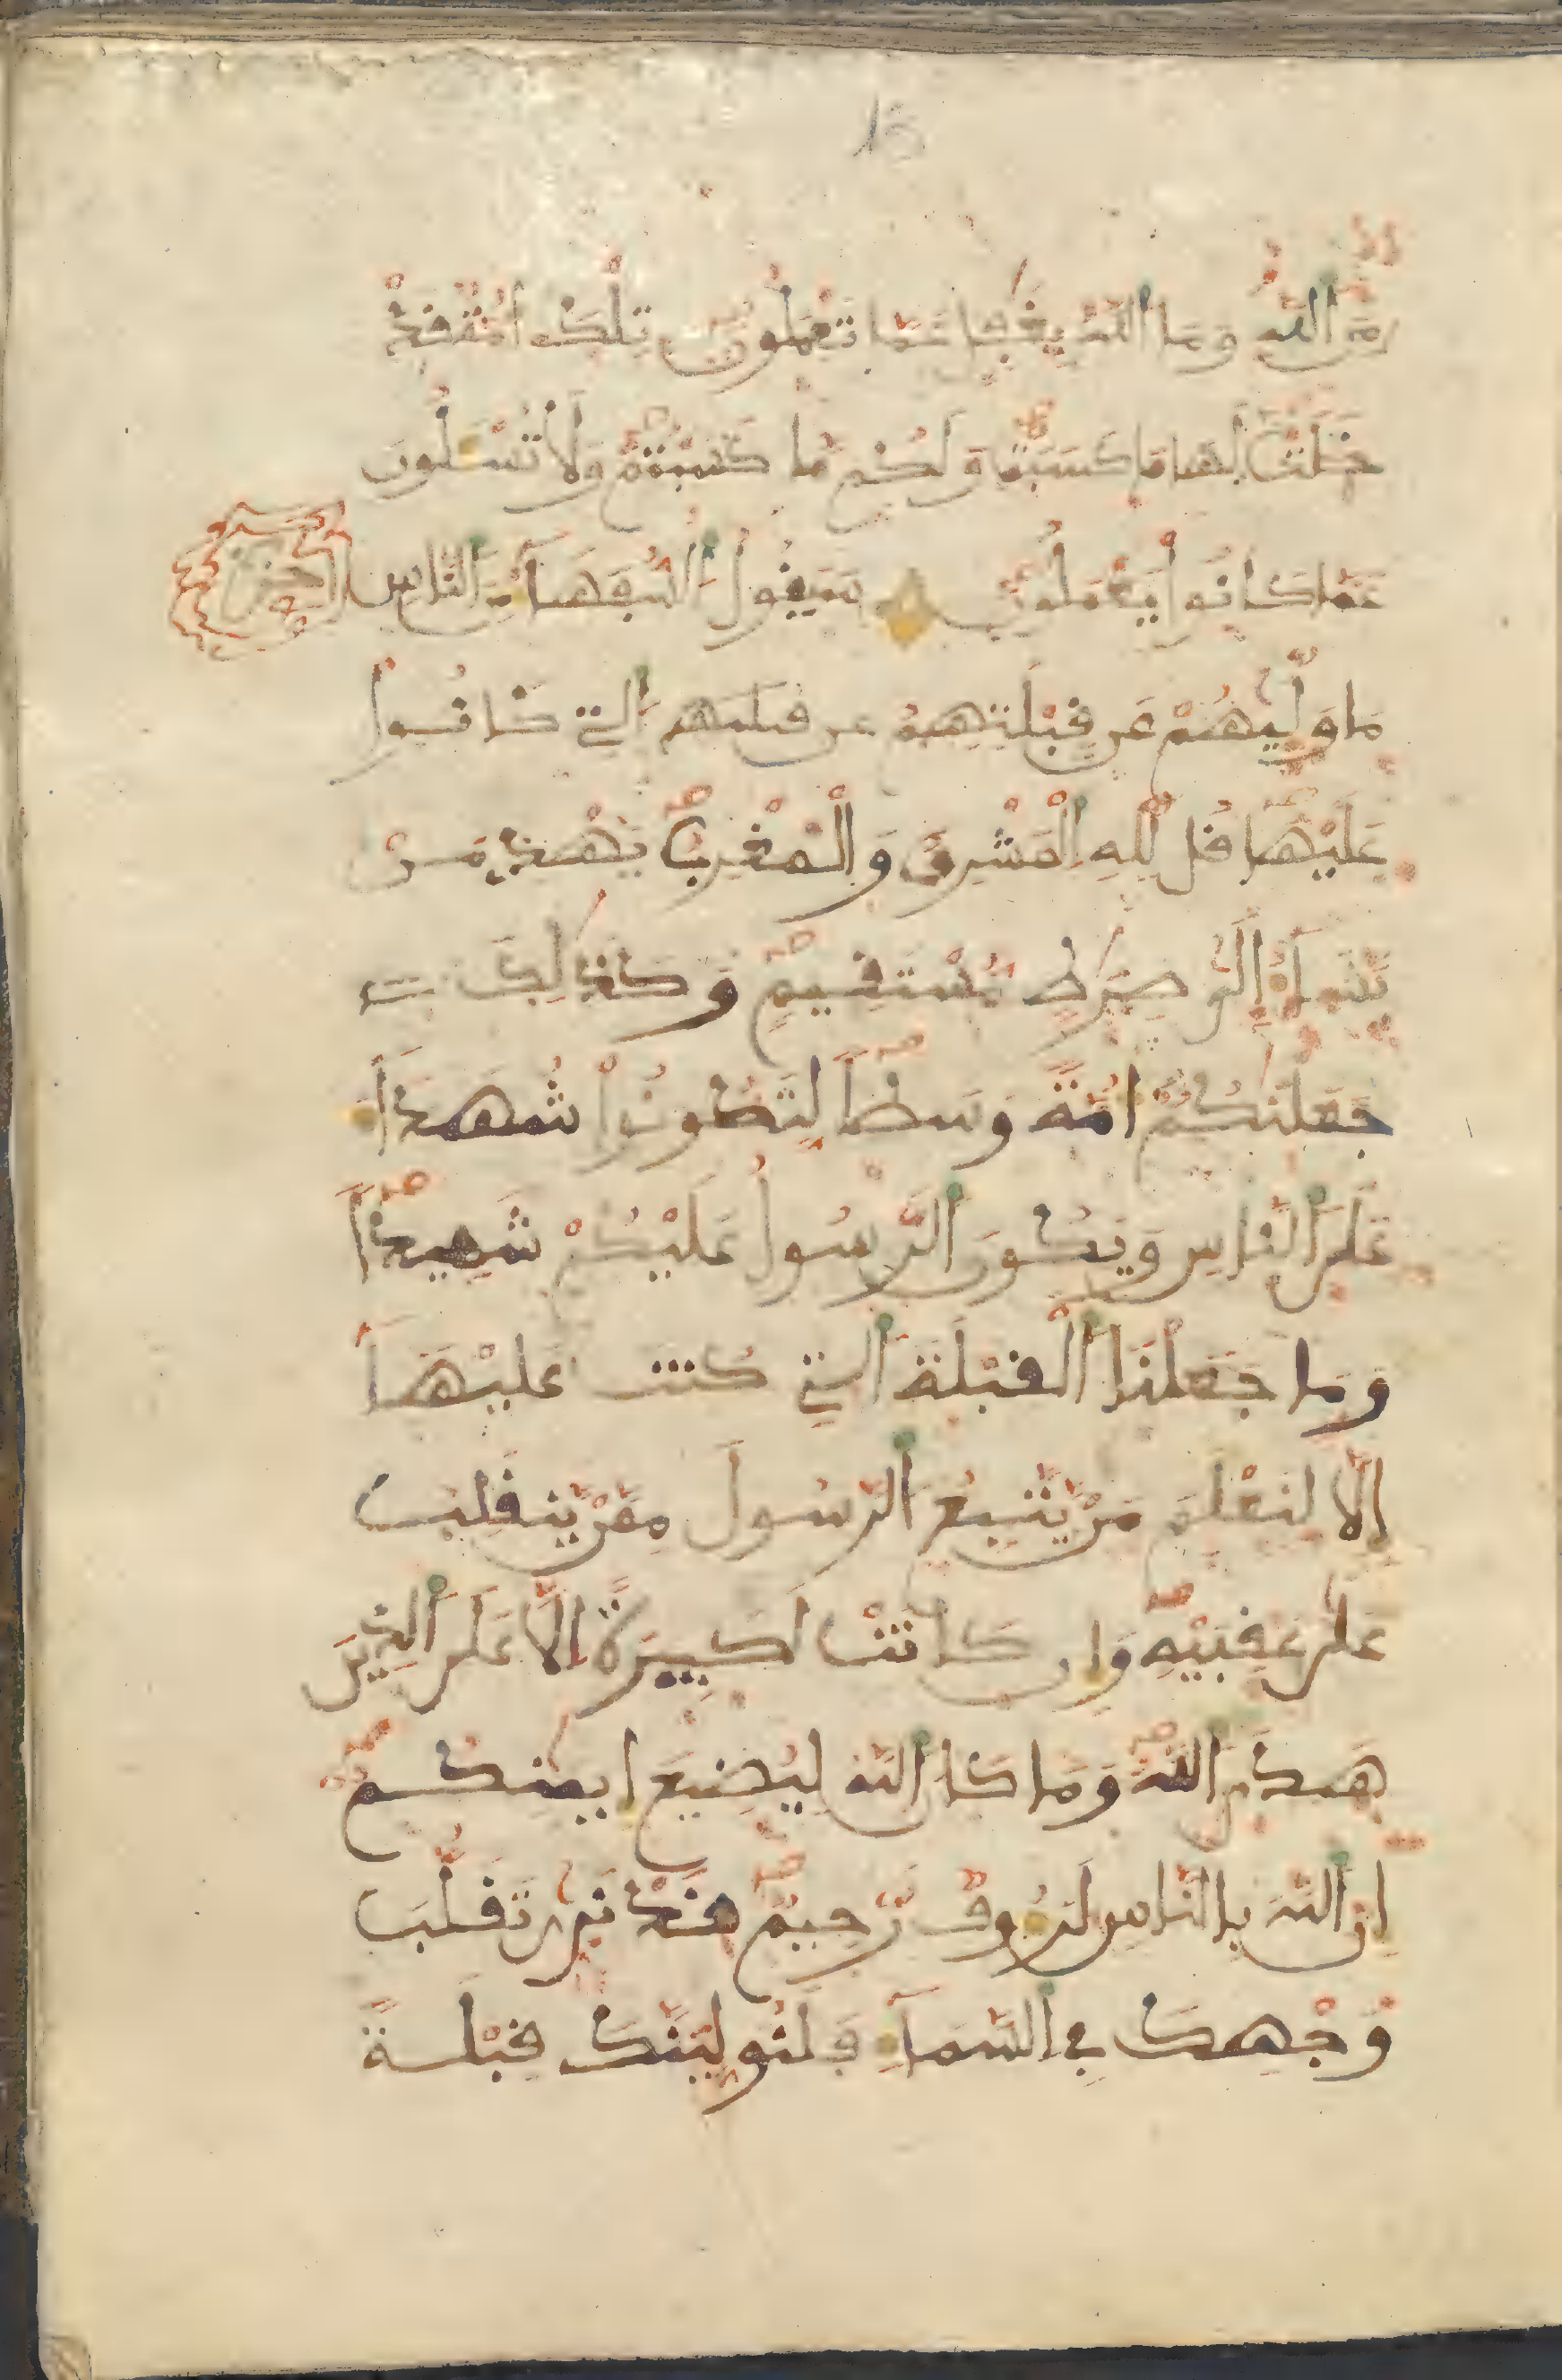 13
مِنَ اَ۬للَّهِ وَمَا اَ۬للَّهُ بِغَٰفِلٍ عَمَّا تَعْمَلُونَ تِلْكَ أُمَّةٌ قَدْ
خَلَتْ لَهَا مَا كَسَبَتْ وَلَكُم مَّا كَسَبْتُمْ وَلَا تُسْـَٔلُونَ
عَمَّا كَانُوا يَعْمَلُونَ سَيَقُولُ اُ۬لسُّفَهَآءُ مِنَ اَ۬لنَّاسِ حزب
مَا وَلّٜيٰهُمْ عَن قِبْلَتِهِمُ عن قبلتهم اُ۬لتِے كَانُوا
عَلَيْهَا قُل لِّلهِ اِ۬لْمَشْرِقُ وَالْمَغْرِبُ يَهْدِے مَنْ
يَّشَآءُ اِلَىٰ صِرَٰطٖ مُّسْتَقِيمٖ وَكَذَٰلِكَ
جَعَلْنَٰكُمُ أُمَّةً وَسَطاً لِّتَكُونُوا شُهَدَآءَ
عَلَى اَ۬لنَّاسِ وَيَكُونَ اَ۬لرَّسُولُ عَلَيْكُمْ شَهِيداً
وَمَا جَعَلْنَا اَ۬لْقِبْلَةَ اَ۬لتِے كُنتَ عَلَيْهَا
إِلَّا لِنَعْلَمَ مَنْ يَّتَّبِعُ اُ۬لرَّسُولَ مِمَّنْ يَّنقَلِبُ
عَلَىٰ عَقِبَيْهِ وَإِن كَانَتْ لَكَبِيرَةً اِلَّا عَلَى اَ۬لذِينَ
هَدَى اَ۬للَّهُ وَمَا كَانَ اَ۬للَّهُ لِيُضِيعَ إِيمَٰنَكُمُ
إِنَّ اَ۬للَّهَ بِالنَّاسِ لَرَءُوفٌ رَّحِيمٌ قَدْ نَر۪ىٰ تَقَلُّبَ
وَجْهِكَ فِے اِ۬لسَّمَآءِ فَلَنُوَلِّيَنَّكَ قِبْلَةً